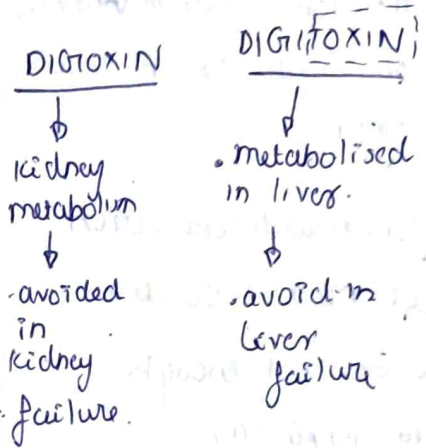 DIGOXIN
kidney
metabolism
.avoided
in
kidney
failure.
DIGITOXIN
.metabolised
in liver.
.avoid in
liver
failure